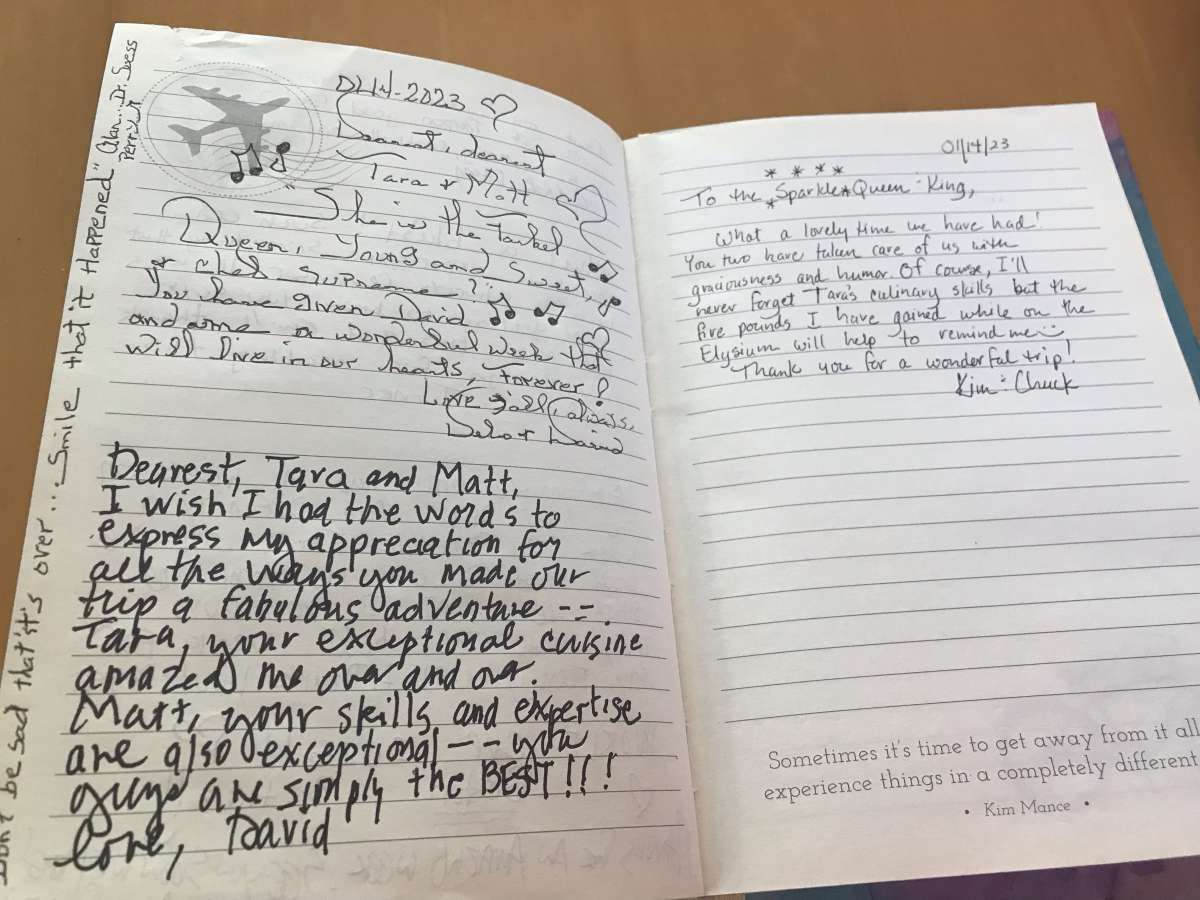 Don't be sad that it's over... Smile that it Happened"
Dr. Seuss
2023
Dearest, dearest
Tara + Matt
"She is the
Queen, Young and Sweet,
Supreme!"
You have given David
and me a wonderful week that
will live in our hearts, forever!
Love y'all, always,
David
Dearest, Tara and Matt,
I wish I had the words to
express my appreciation for
all the ways you made our
trip a fabulous adventure --
Tara, your exceptional cuisine
amazed me over and over.
Matt, your skills and expertise
are also exceptional -- you
guys are simply the BEST!!!
love, David
01/14/23
To the Sparkle Queen & King,
What a lovely time we have had!
You two have taken care of us with
graciousness and humor. Of course, I'll
never forget Tara's culinary skills but the
five pounds I have gained while on the
Elysium will help to remind me
Thank you for a wonderful trip!
Kim & Chuck
Sometimes it's time to get away from it all
experience things in a completely different
• Kim Mance •